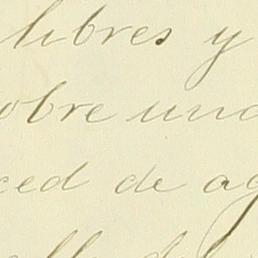 libres y
obre una
ced de ag